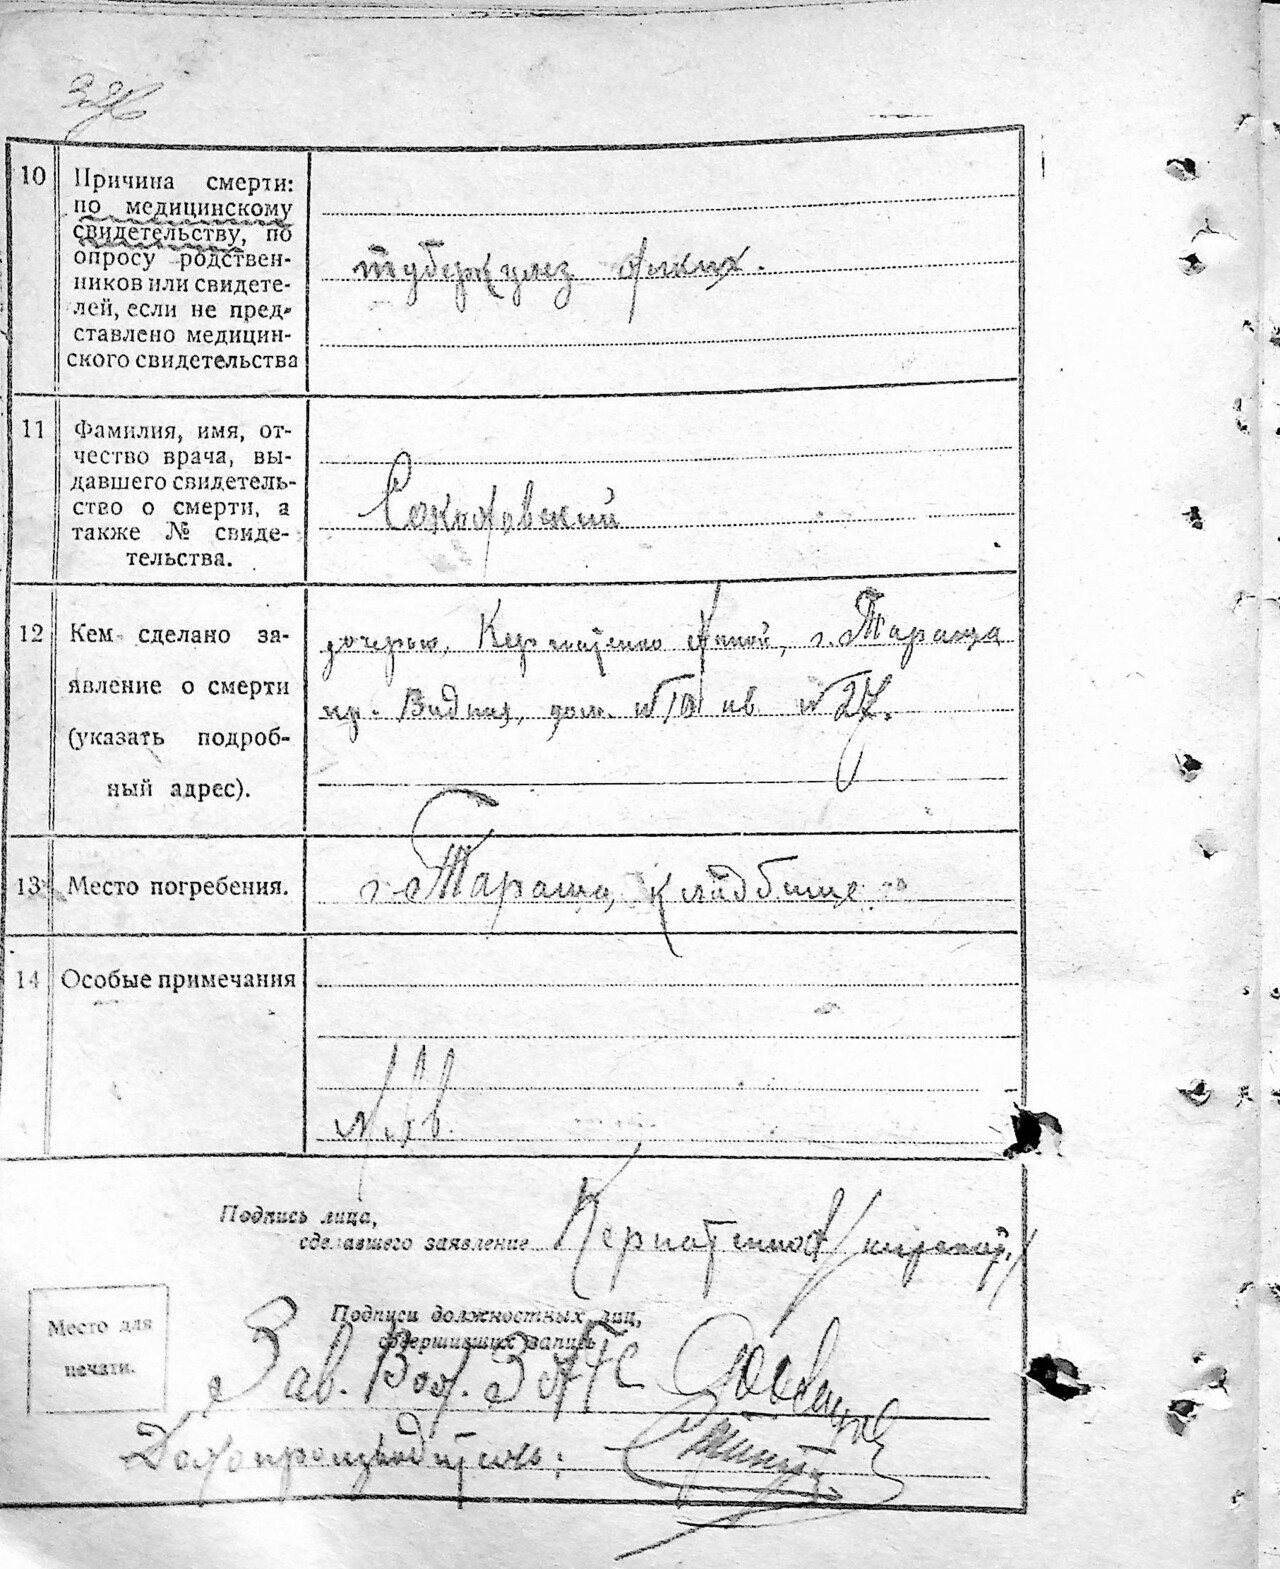 10 Причина смерти:
по медицинскому
свидетельству, по
опросу родствен-
ников или свидете-
лей, если не пред-
ставлено медицин-
ского свидетельства
туберкулез легких.
11 Фамилия, имя, от-
чество врача, вы-
давшего свидетель-
ство о смерти, а
также № свиде-
тельства.
Соколовский
12 Кем сделано за-
явление о смерти
(указать подроб-
ный адрес).
дочерью, Анной, г. Тараща
дом. № кв № 27.
13 Место погребения.
г. Тараща, кладбище
14 Особые примечания
Подпись лица,
сделавшего заявление
Место для
печати.
Подписи должностных лиц,
совершивших запись
Зав. Вол. ЗАГС
Делопроизводитель: